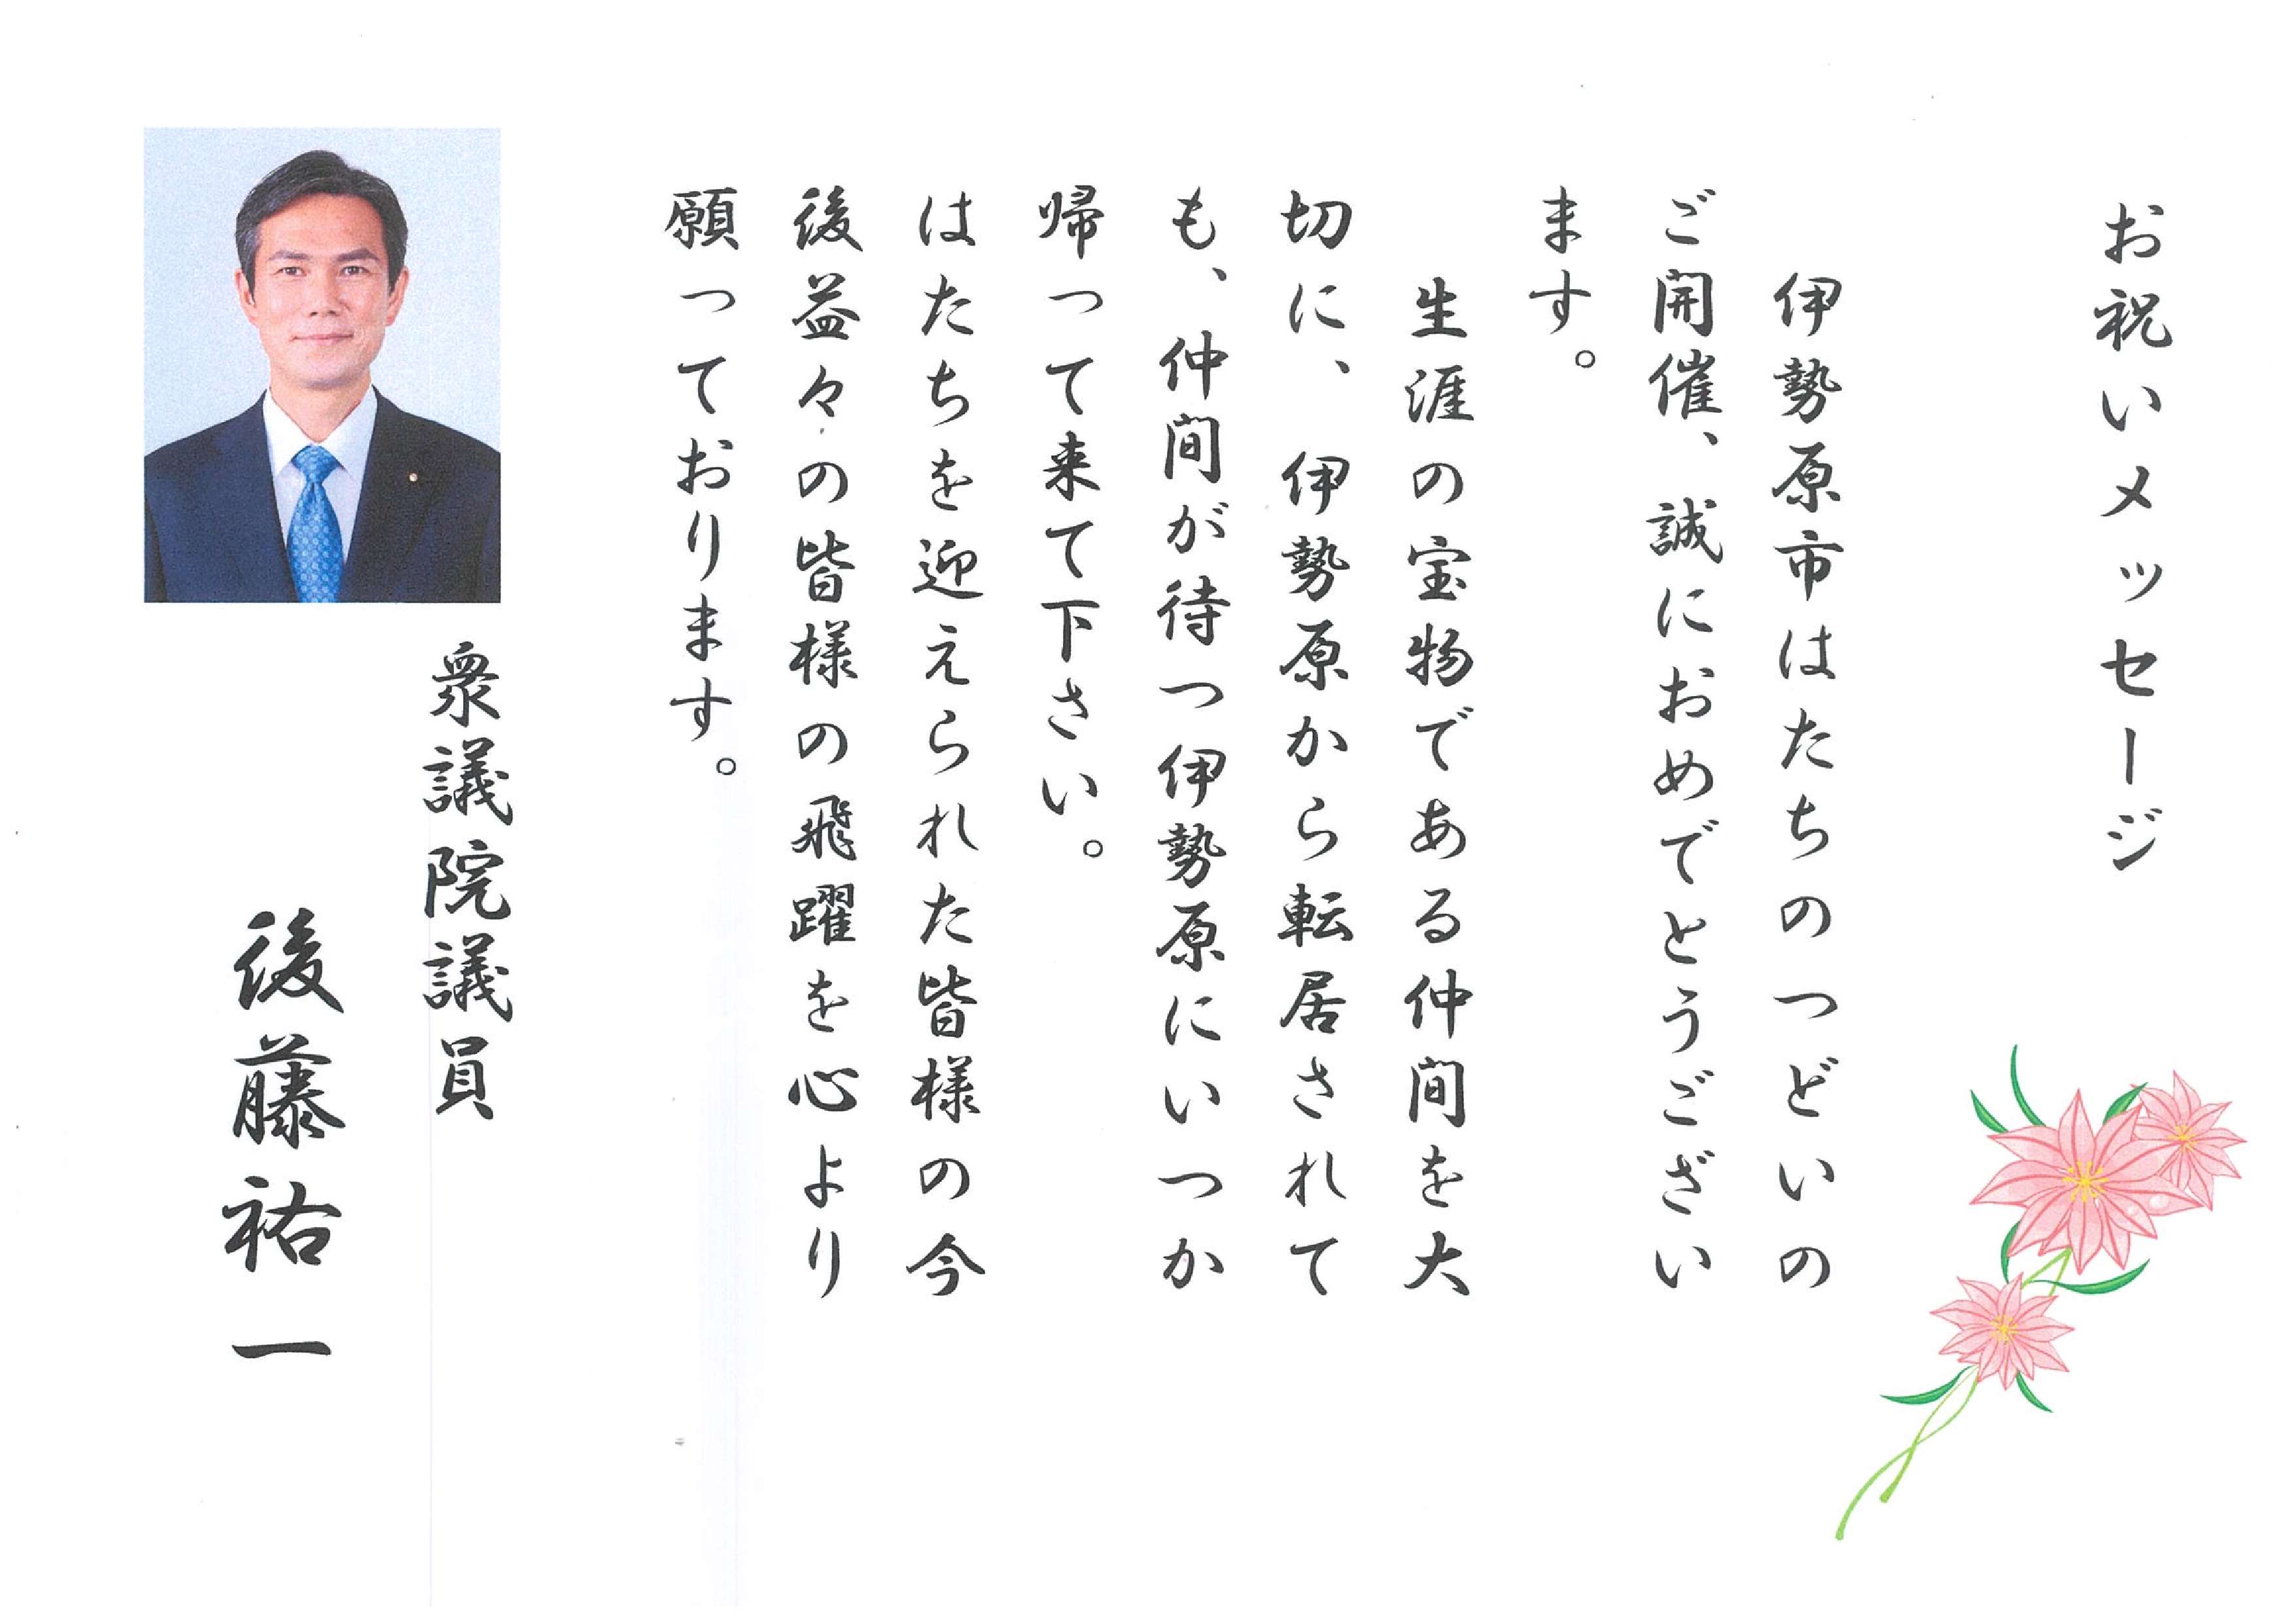 お祝いメッセージ
伊勢原市はたちのつどいの
ご開催、誠におめでとうござい
ます。
生涯の宝物である仲間を大
切に、伊勢原から転居されて
も、仲間が待つ伊勢原にいつか
帰って来て下さい。
はたちを迎えられた皆様の今
後益々の皆様の飛躍を心より
願っております。
衆議院議員
後藤祐一